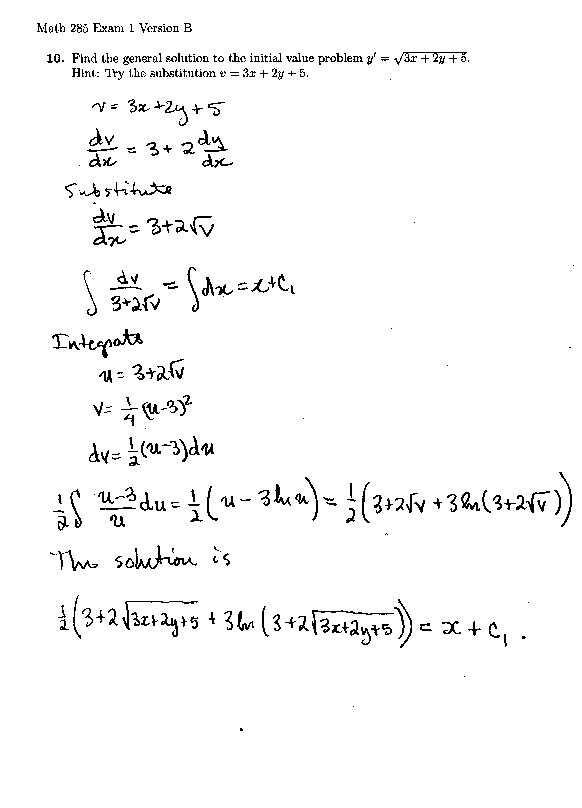 Math 285 Exam 1 Version B
10. Find the general solution to the initial value problem y' = √(3x + 2y + 5).
Hint: Try the substitution v = 3x + 2y + 5.
v = 3x + 2y + 5
dv/dx = 3 + 2 dy/dx
Substitute
dv/dx = 3 + 2√v
∫ dv/(3+2√v) = ∫ dx = x + C₁
Integrate
u = 3+2√v
v = 1/4 (u-3)²
dv = 1/2 (u-3) du
1/2 ∫ (u-3)/u du = 1/2 (u - 3 ln u) = 1/2 (3+2√v + 3 ln (3+2√v))
The solution is
1/2 (3+2√(3x+2y+5) + 3 ln (3+2√(3x+2y+5))) = x + C₁ .